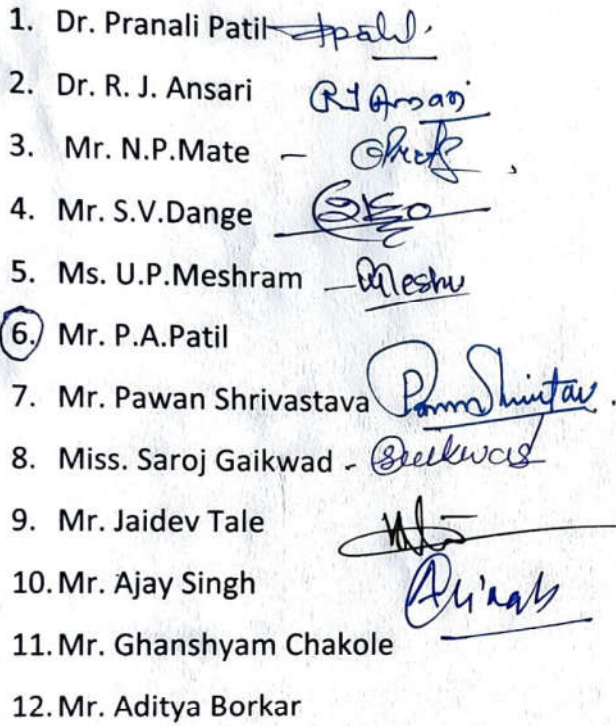 1. Dr. Pranali Patil
2. Dr. R. J. Ansari RJ Ansari
3. Mr. N.P.Mate -
4. Mr. S.V.Dange
5. Ms. U.P.Meshram -
6. Mr. P.A.Patil
7. Mr. Pawan Shrivastava
8. Miss. Saroj Gaikwad -
9. Mr. Jaidev Tale
10. Mr. Ajay Singh
11. Mr. Ghanshyam Chakole
12. Mr. Aditya Borkar